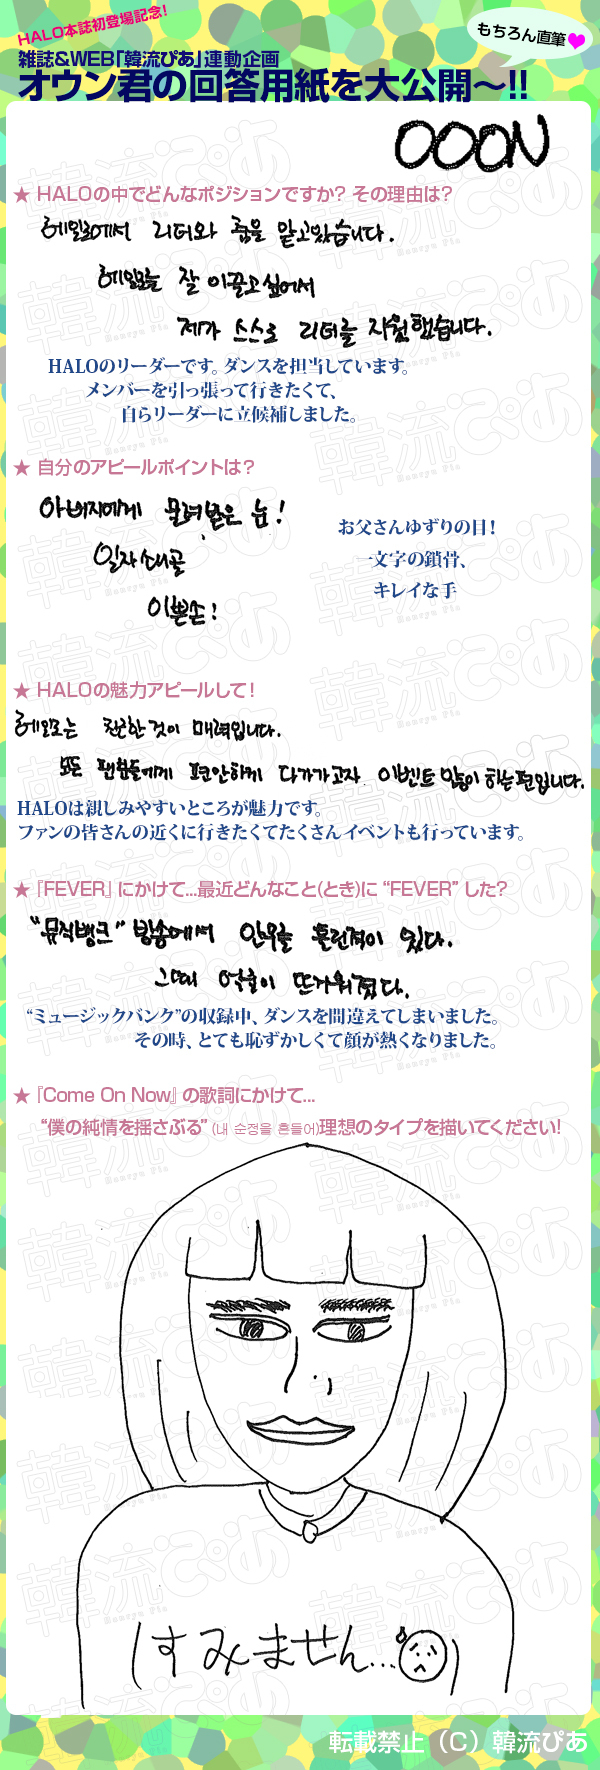 HALO本誌初登場記念!
雑誌&WEB「韓流ぴあ」連動企画
もちろん直筆
オウン君の回答用紙を大公開〜!!
OOON
★ HALOの中でどんなポジションですか? その理由は?
헤일로에서 리더와 춤을 맡고있습니다.
헤일로를 잘 이끌고싶어서
제가 스스로 리더를 지원했습니다.
HALOのリーダーです。ダンスを担当しています。
メンバーを引っ張って行きたくて、
自らリーダーに立候補しました。
★ 自分のアピールポイントは?
아버지에게 물려받은 눈!
일자쇄골
이쁜손!
お父さんゆずりの目!
一文字の鎖骨、
キレイな手
★ HALOの魅力アピールして!
헤일로는 친근한것이 매력입니다.
모든 팬분들에게 편안하게 다가가고자 이벤트 많이 하는편입니다.
HALOは親しみやすいところが魅力です。
ファンの皆さんの近くに行きたくてたくさんイベントも行っています。
★『FEVER』にかけて...最近どんなこと(とき)に “FEVER” した?
“뮤직뱅크” 방송에서 안무를 틀린적이 있다.
그때 얼굴이 뜨거워졌다.
“ミュージックバンク”の収録中、ダンスを間違えてしまいました。
その時、とても恥ずかしくて顔が熱くなりました。
★『Come On Now』の歌詞にかけて...
“僕の純情を揺さぶる” (내 순정을 흔들어)理想のタイプを描いてください!
(すみません...)
転載禁止（C）韓流ぴあ